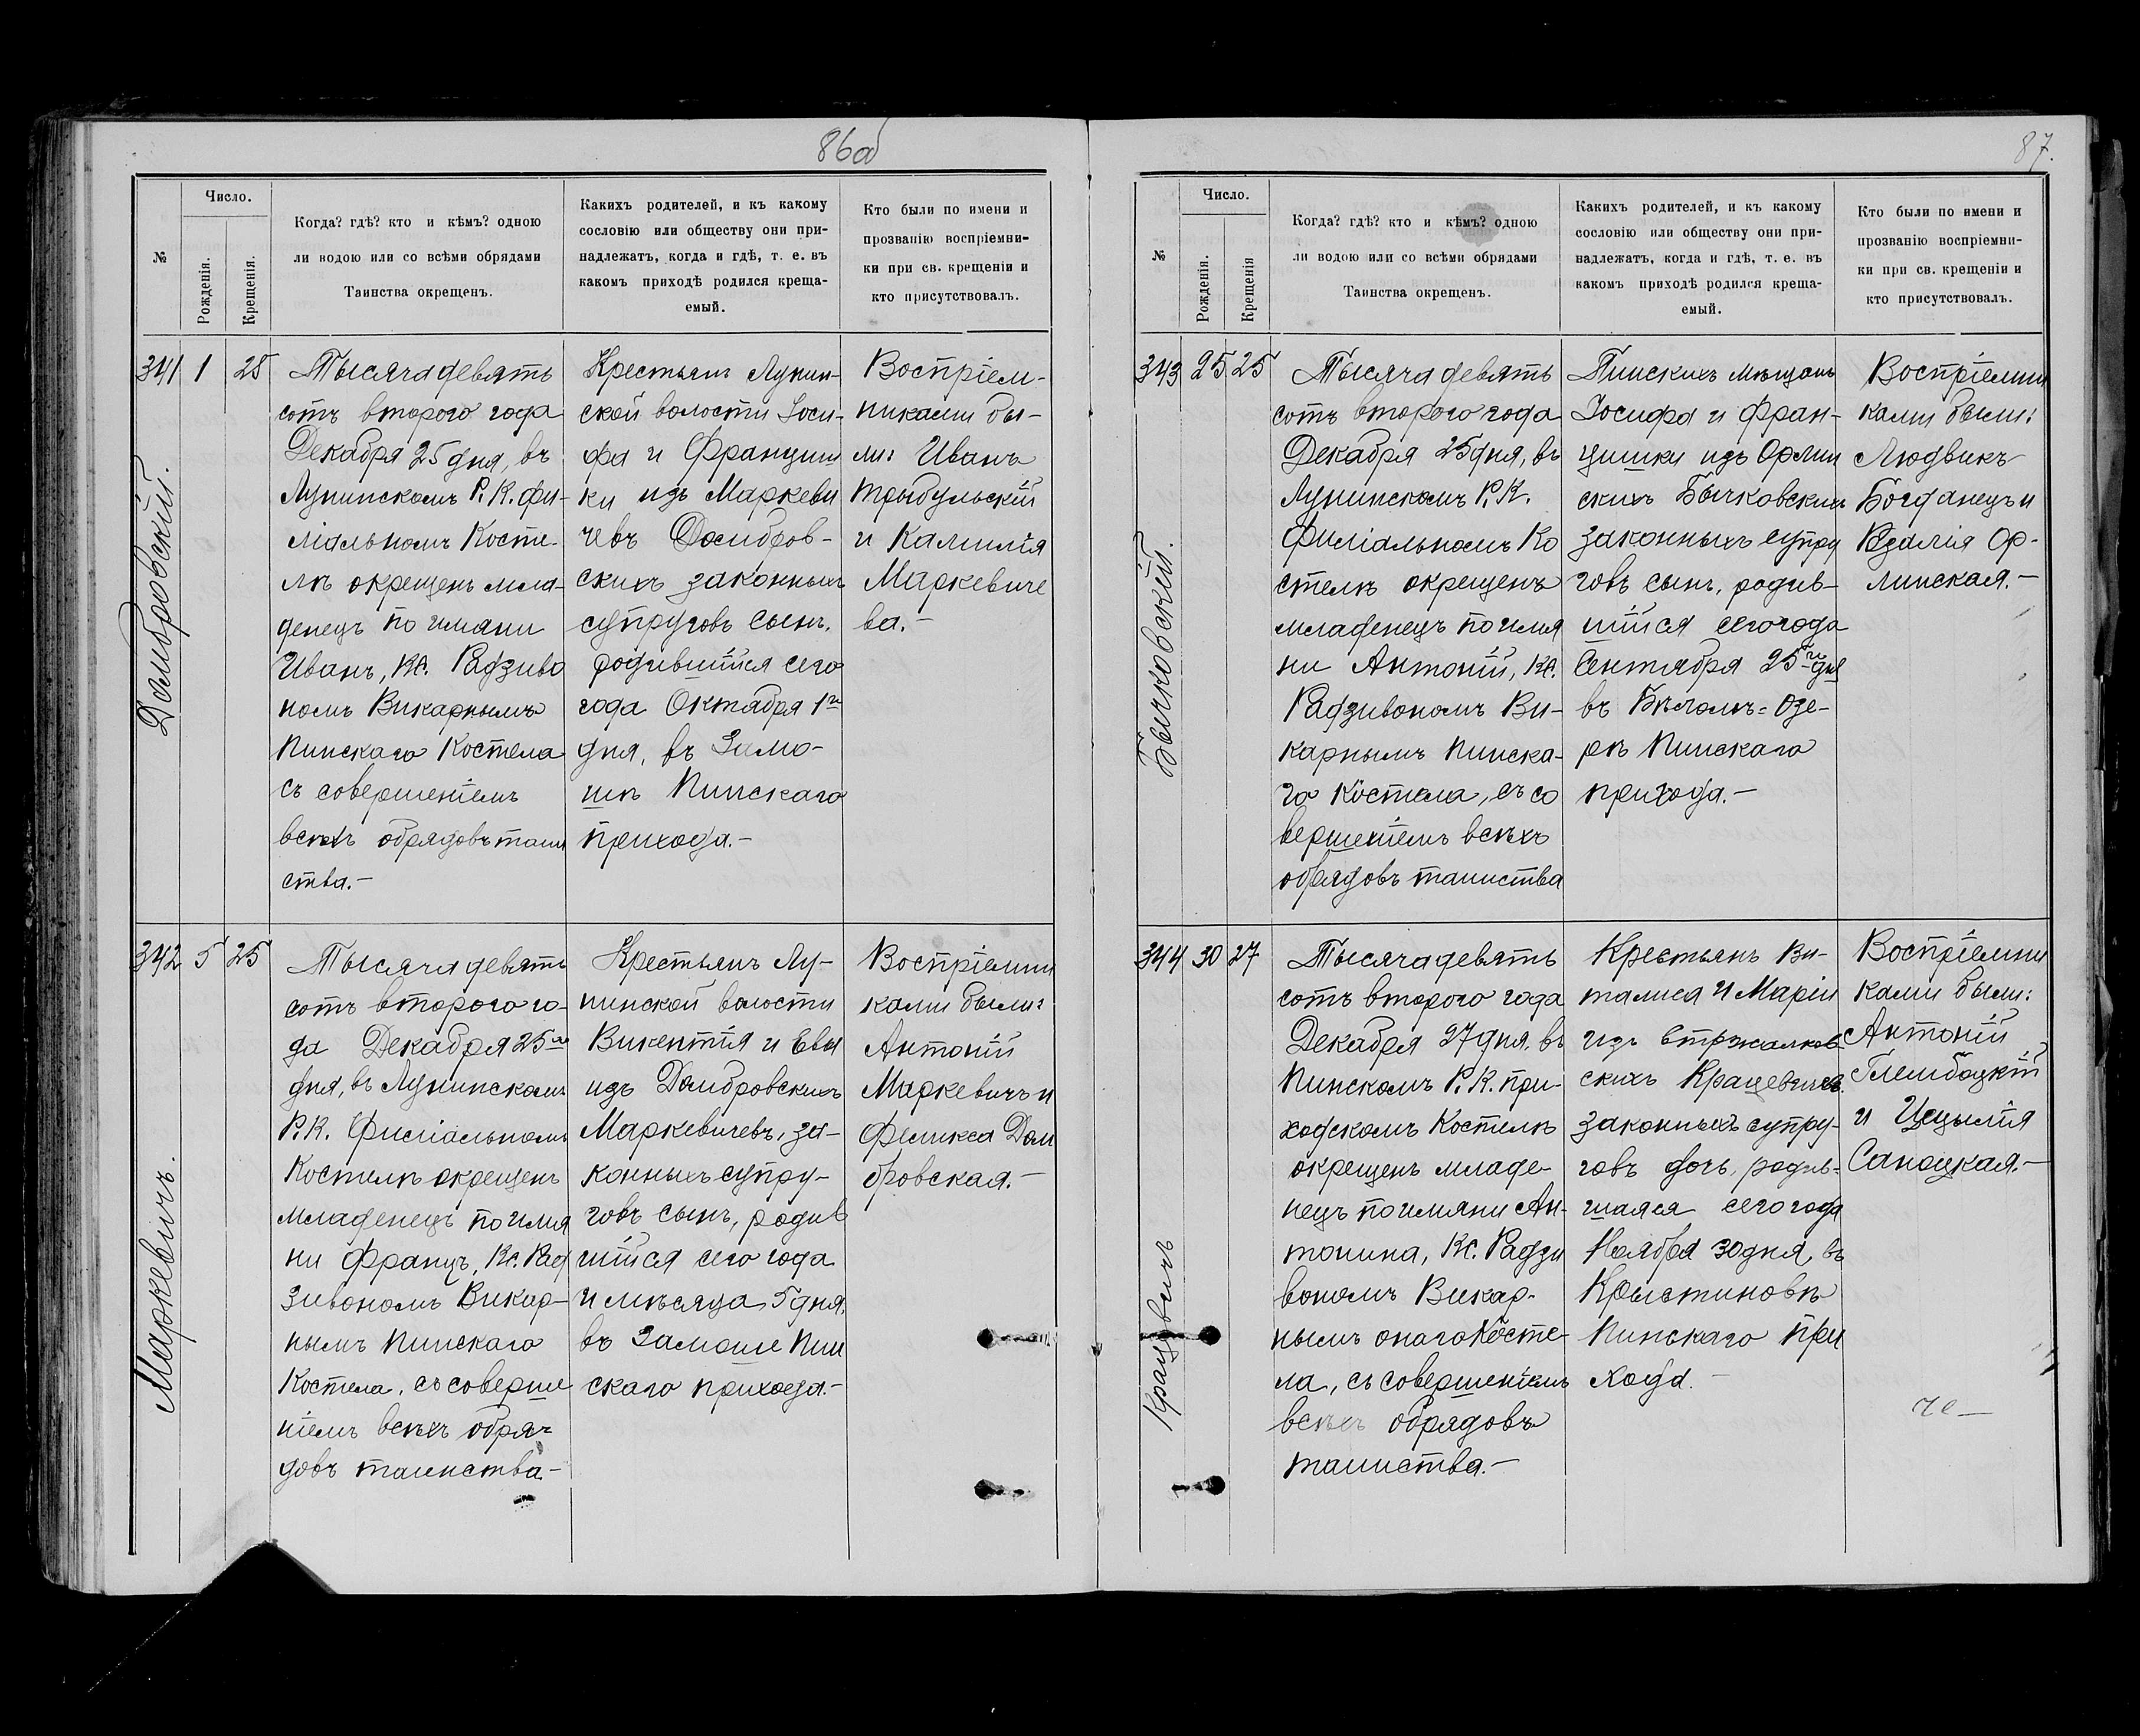 86об
№
Число.
Рожденія.
Крещенія.
Когда? гдѣ? кто и кѣмъ? одною
ли водою или со всѣми обрядами
Таинства окрещенъ.
Какихъ родителей, и къ какому
сословію или обществу они при-
надлежатъ, когда и гдѣ, т. е. въ
какомъ приходѣ родился креща-
емый.
Кто были по имени и
прозванію воспріемни-
ки при св. крещеніи и
кто присутствовалъ.
341
1
25
Домбровскій.
Тысяча девять
сотъ второго года
Декабря 25 дня, въ
Лунинскомъ Р. К. фи-
ліальномъ Косте-
лѣ окрещенъ мла-
денецъ по имяни
Иванъ, Кс. Радзиво
номъ Викарнымъ
Пинскаго Костела
съ совершеніемъ
всѣхъ обрядовъ таин
ства.-
Крестьянъ Лунин-
ской волости Іоси-
фа и Францишк
ки изъ Маркеви
чевъ Домбров-
скихъ законныхъ
супруговъ сынъ,
родившійся сего
года Октября 1го
дня, въ Замо-
шѣ Пинскаго
прихода.-
Воспріем-
никами бы-
ли: Иванъ
Трыбульскій
и Камилія
Маркевиче
ва.-
342
5
25
Маркевичъ.
Тысяча девять
сотъ второго го-
да Декабря 25го
дня, въ Лунинскомъ
Р. К. Филіальномъ
Костелѣ окрещенъ
младенецъ по имя
ни Францъ, Кс. Рад
зивономъ Викар-
нымъ Пинскаго
Костела, съ соверше
ніемъ всѣхъ обря-
довъ таинства.-
Крестьянъ Лу-
нинской волости
Викентія и Евы
изъ Домбровскихъ
Маркевичевъ, за-
конныхъ супру-
говъ сынъ, родив
шійся сего года
и мѣсяца 5 дня,
въ Замоше Пин
скаго прихода.-
Воспріемни
ками были:
Антоній
Маркевичъ и
Феликса Дом
бровская.-
87.
№
Число.
Рожденія.
Крещенія
Когда? гдѣ? кто и кѣмъ? одною
ли водою или со всѣми обрядами
Таинства окрещенъ.
Какихъ родителей, и къ какому
сословію или обществу они при-
надлежатъ, когда и гдѣ, т. е. въ
какомъ приходѣ родился креща-
емый.
Кто были по имени и
прозванію воспріемни-
ки при св. крещеніи и
кто присутствовалъ.
343
25
25
Бычковскій.
Тысяча девять
сотъ второго года
Декабря 25 дня, въ
Лунинскомъ Р. К.
Филіальномъ Ко
стелѣ окрещенъ
младенецъ по имя
ни Антоній, Кс.
Радзивономъ Ви-
карнымъ Пинска-
го Костела, съ со
вершеніемъ всѣхъ
обрядовъ таинства
Пинскихъ мѣщанъ
Іосифа и Фран-
цишки изъ Орлин
скихъ Бычковскихъ
законныхъ супру
говъ сынъ, родив-
шійся сего года
Сентября 25го дня
въ Бѣломъ-Озе-
рѣ Пинскаго
прихода.-
Воспріемни
ками были:
Людвикъ
Богданецъ и
Розалія Ор-
линская.-
344
30
27
Крацевичъ
Тысяча девять
сотъ второго года
Декабря 27 дня, въ
Пинскомъ Р. К. при-
ходскомъ Костелѣ
окрещенъ младе-
нецъ по имяни Ан-
тонина, Кс. Радзи
вономъ Викар-
нымъ онаго Косте-
ла, съ совершеніемъ
всѣхъ обрядовъ
таинства.-
Крестьянъ Ви-
талиса и Маріи
изъ Встржалков-
скихъ Крацевичей
законныхъ супру-
говъ дочь, родив-
шаяся сего года
Ноября 30 дня, въ
Крыстиновѣ
Пинскаго при
хода.-
Воспріемни
ками были:
Антоній
Глембоцкій
и Цецылія
Саноцкая.-